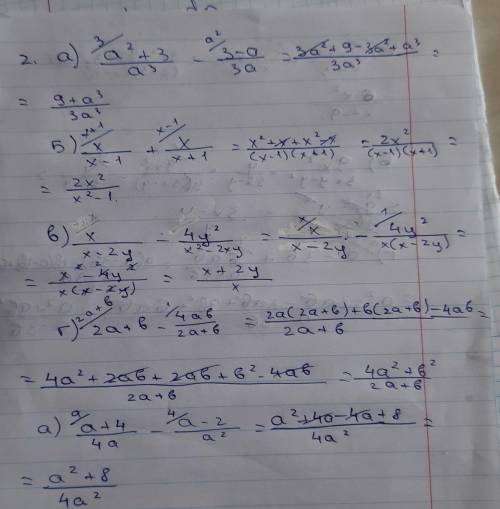 2. а) ³/ (a² + 3)/a³ - a²/ (3 - a)/3a = (3a² + 9 - 3a² + a³)/3a³ =
= (9 + a³)/3a³
Б) x+1/ x/(x - 1) + x-1/ x/(x + 1) = (x² + x + x² - x)/((x-1)(x+1)) = 2x²/((x-1)(x+1)) =
= 2x²/(x² - 1).
в) x/(x - 2y) - 4y²/(x² - 2xy) = x/ x/(x - 2y) - 1/ 4y²/(x(x - 2y)) =
= (x² - 4y²)/(x(x - 2y)) = (x + 2y)/x
г) 2a+в/ 2a + в - 1/ 4aв/(2a + в) = (2a(2a+в) + в(2a+в) - 4aв)/(2a + в) =
= (4a² + 2aв + 2aв + в² - 4aв)/(2a + в) = (4a² + в²)/(2a + в)
а) a/ (a + 4)/4a - 4/ (a - 2)/a² = (a² + 4a - 4a + 8)/4a² =
= (a² + 8)/4a²